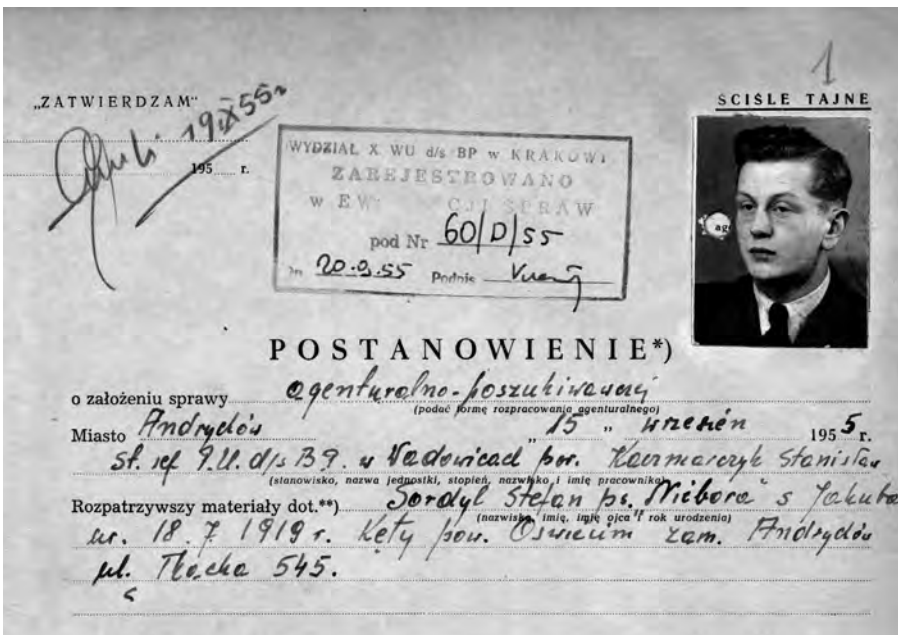 1
„ZATWIERDZAM"
ŚCIŚLE TAJNE
19.IX 55 r
195 r.
WYDZIAŁ X WU d/s BP w KRAKOWI
ZAREJESTROWANO
w EW CJI SPRAW
pod Nr 60/D/55
Dn 20.9.55 Podpis
POSTANOWIENIE*)
o założeniu sprawy agenturalno-poszukiwawczej
(podać formę rozpracowania agenturalnego)
Miasto Andrychów „15" wrzesień 1955 r.
st. ref P.U. d/s B.P. w Wadowicach por. Kaczmarczyk Stanisław
(stanowisko, nazwa jednostki, stopień, nazwisko i imię pracownika)
Rozpatrzywszy materiały dot.**) Sordyl Stefan ps. „Wichora" s Jakuba
(nazwisko, imię, imię ojca i rok urodzenia)
ur. 18.7.1919 r. Kęty pow. Oświęcim zam. Andrychów
ul. Tkacka 545.